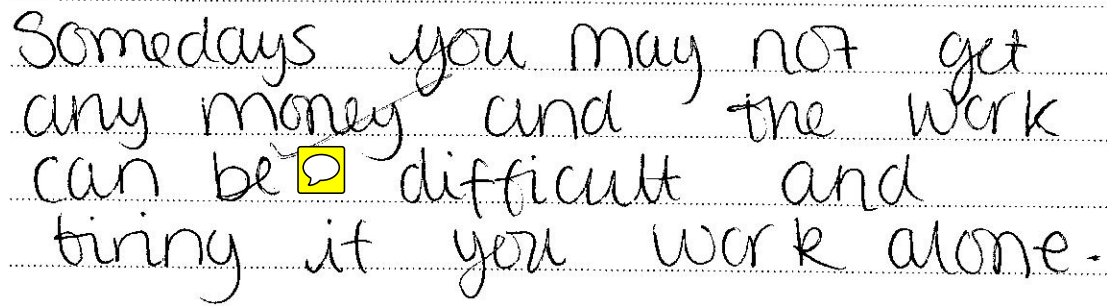 Somedays you may not get
any money and the work
can be difficult and
tiring if you work alone.